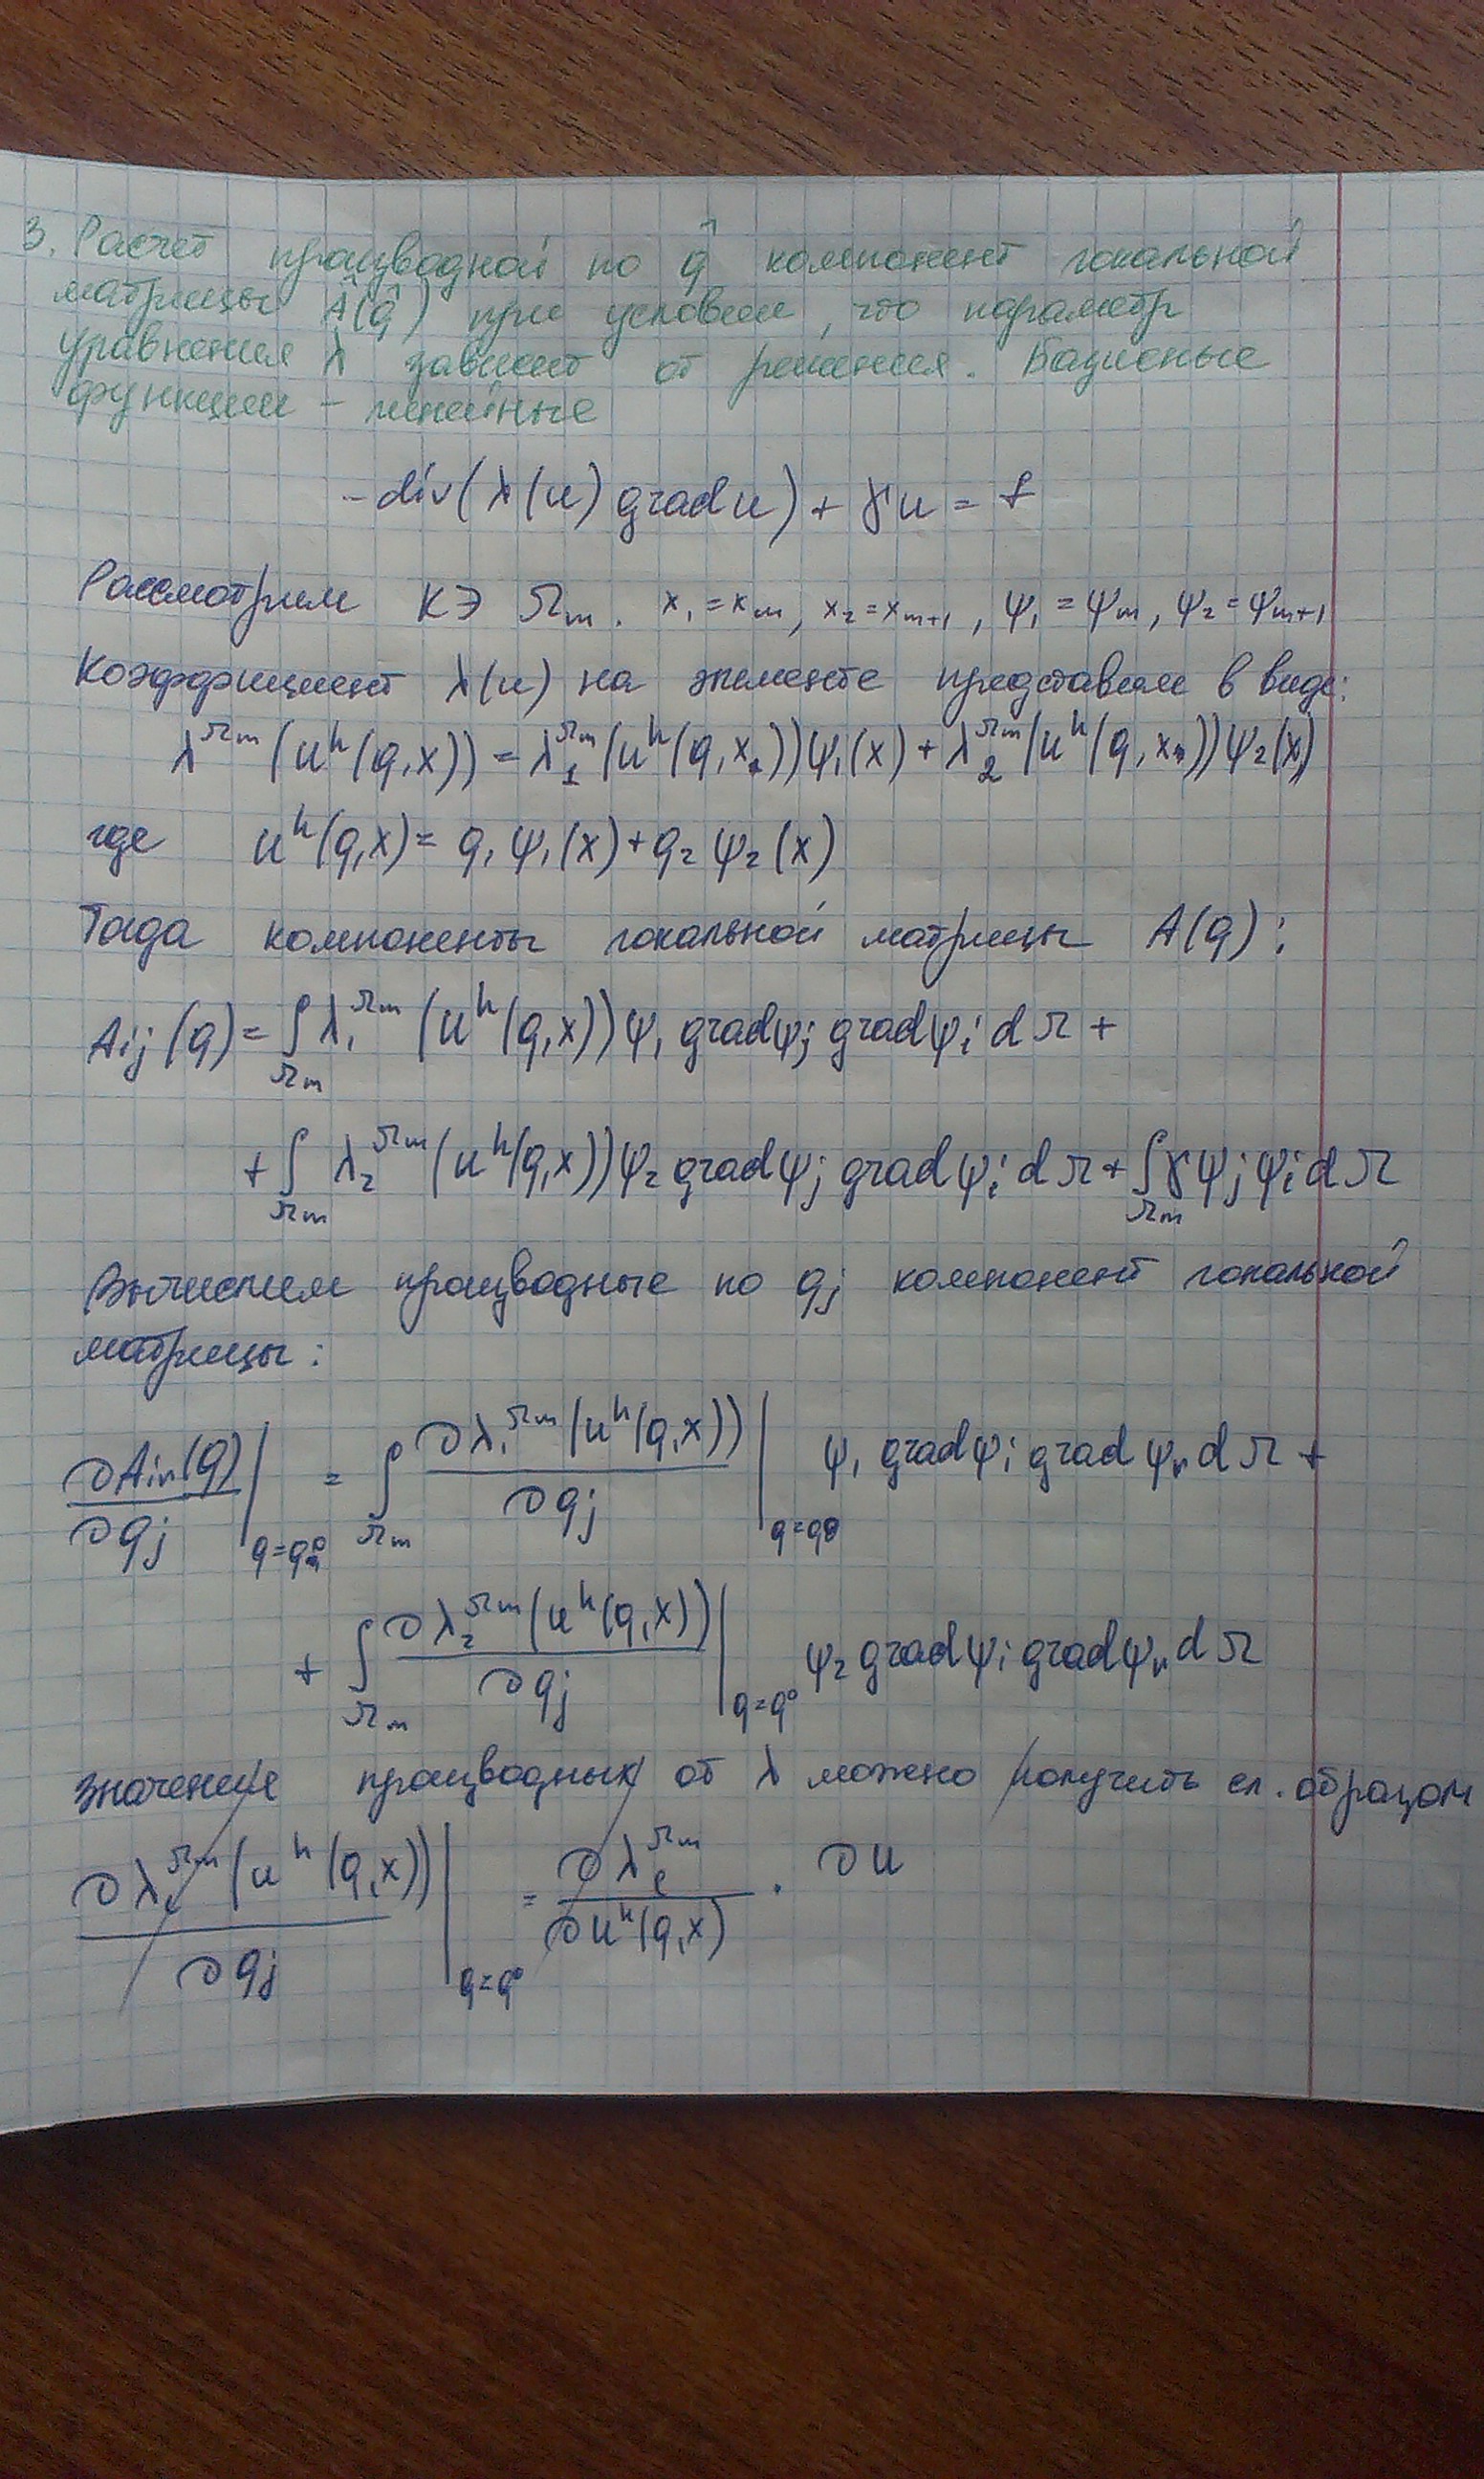 3. Расчет производной по q̂ компонент локальной
матрицы Â(q̂) при условии, что параметр
уравнения λ зависит от решения. Базисные
функции - линейные
-div(λ(u) grad u) + γu = f
Рассмотрим КЭ Ωm. x₁ = xm, x₂ = xm+1, ψ₁ = ψm, ψ₂ = ψm+1
Коэффициент λ(u) на элементе представим в виде:
λ^Ωm (u^h(q,x)) = λ₁^Ωm (u^h(q,x₁))ψ₁(x) + λ₂^Ωm (u^h(q,x₂))ψ₂(x)
где u^h(q,x) = q₁ψ₁(x) + q₂ψ₂(x)
Тогда компоненты локальной матрицы A(q):
Aij(q) = ∫Ωm λ₁^Ωm (u^h(q,x))ψ₁ gradψj gradψi dΩ +
+ ∫Ωm λ₂^Ωm (u^h(q,x))ψ₂ gradψj gradψi dΩ + ∫Ωm γψjψi dΩ
Вычислим производные по qj компонент локальной
матрицы:
∂Air(q)/∂qj |q=q⁰ = ∫Ωm ∂λ₁^Ωm (u^h(q,x))/∂qj |q=q⁰ ψ₁ gradψi gradψr dΩ +
+ ∫Ωm ∂λ₂^Ωm (u^h(q,x))/∂qj |q=q⁰ ψ₂ gradψi gradψr dΩ
Значения производных от λ можно получить сл. образом
∂λ^Ωm (u^h(q,x))/∂qj |q=q⁰ = ∂λℓ^Ωm/∂u^h(q,x) · ∂u